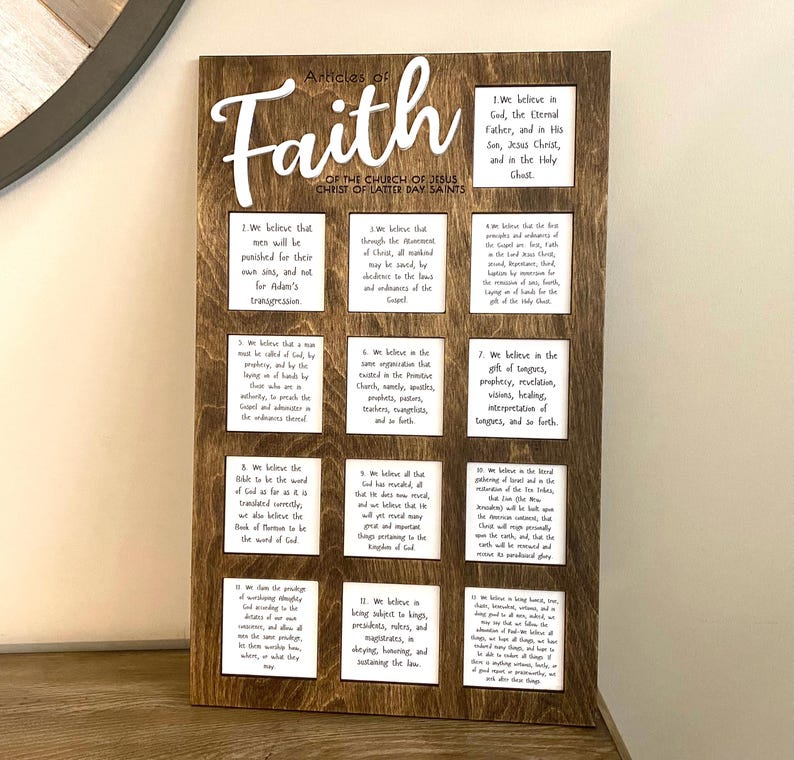 Articles of
Faith
OF THE CHURCH OF JESUS
CHRIST OF LATTER DAY SAINTS
1. We believe in
God, the Eternal
Father, and in His
Son, Jesus Christ,
and in the Holy
Ghost.
2. We believe that
men will be
punished for their
own sins, and not
for Adam's
transgression.
3. We believe that
through the Atonement
of Christ, all mankind
may be saved, by
obedience to the laws
and ordinances of the
Gospel.
4. We believe that the first
principles and ordinances of
the Gospel are: first, Faith
in the Lord Jesus Christ;
second, Repentance; third,
baptism by immersion for
the remission of sins, fourth,
Laying on of hands for the
gift of the Holy Ghost.
5. We believe that a man
must be called of God, by
prophecy, and by the
laying on of hands by
those who are in
authority, to preach the
Gospel and administer in
the ordinances thereof.
6. We believe in the
same organization that
existed in the Primitive
Church, namely, apostles,
prophets, pastors,
teachers, evangelists,
and so forth.
7. We believe in the
gift of tongues,
prophecy, revelation,
visions, healing,
interpretation of
tongues, and so forth.
8. We believe the
Bible to be the word
of God as far as it is
translated correctly;
we also believe the
Book of Mormon to be
the word of God.
9. We believe all that
God has revealed, all
that He does now reveal,
and we believe that He
will yet reveal many
great and important
things pertaining to the
Kingdom of God.
10. We believe in the literal
gathering of Israel and in the
restoration of the Ten Tribes;
that Zion (the New
Jerusalem) will be built upon
the American continent; that
Christ will reign personally
upon the earth; and, that the
earth will be renewed and
receive its paradisiacal glory.
11. We claim the privilege
of worshiping Almighty
God according to the
dictates of our own
conscience, and allow all
men the same privilege,
let them worship how,
where, or what they
may.
12. We believe in
being subject to kings,
presidents, rulers, and
magistrates, in
obeying, honoring, and
sustaining the law.
13. We believe in being honest, true,
chaste, benevolent, virtuous, and in
doing good to all men; indeed, we
may say that we follow the
admonition of Paul-We believe all
things, we hope all things, we have
endured many things, and hope to
be able to endure all things. If
there is anything virtuous, lovely, or
of good report or praiseworthy, we
seek after these things.